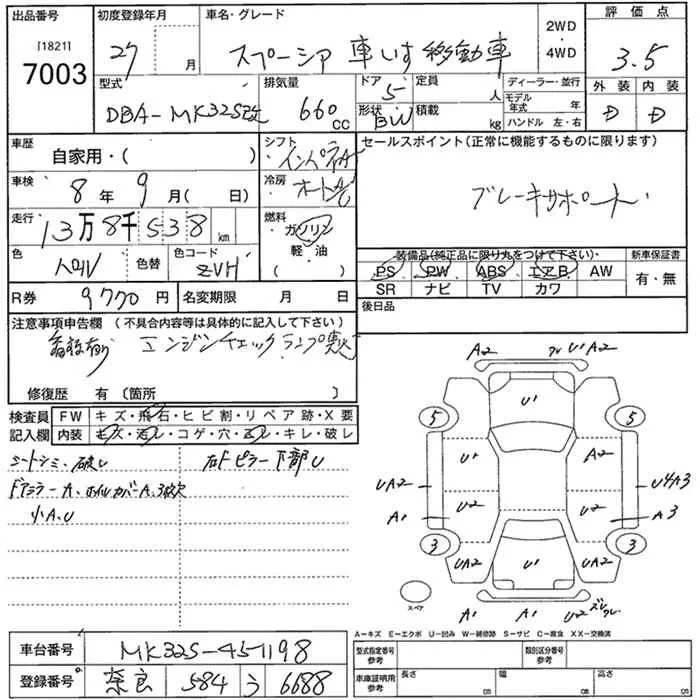 出品番号 初度登録年月 車名・グレード 2WD 4WD 評価点
[1821] 7003 27 月 スペーシア 車いす移動車 3.5
型式 排気量 ドア 定員 ディーラー・並行 外装 内装
DBA-MK32S改 660 CC 5 人 モデル年式 年 D D
形状 積載 BW kg ハンドル 左・右
車歴 自家用・( ) シフト インパネA セールスポイント(正常に機能するものに限ります)
車検 8年 9月( 日) 冷房 オート ブレーキサポート
走行 13万8千538 km 燃料 ガソリン 軽・油 ( )
色 色替 色コード ZVH
装備品(純正品に限り丸をつけて下さい)・ 新車保証書
PS PW ABS エアB AW 有・無
SR ナビ TV カワ
R券 9770円 名変期限 月 日 後日品
注意事項申告欄 (不具合内容等は具体的に記入して下さい)
エンジンチェックランプ
修復歴 有 〔箇所 〕
検査員 FW キズ・飛石・ヒビ割・リペア跡・X要
記入欄 内装 キズ・汚レ・コゲ・穴・キレ・破レ
シートシミ、破レ 右Fピラー下部U
ドアミラーA、ホイルカバーA、3欠
小A、U
A2 U1A2
U1
5 5
U1 A2
UA2 U4A3
U2 U2
A1 A3
3 3
UA2 U1 UA2
スペア
A1 A1 U2
A-キズ E-エクボ U-凹み W-補修跡 S-サビ C-腐食 XX-交換済
車台番号 MK32S-451198
登録番号 奈良 584 う 6688
型式指定番号 参考 類別区分番号 参考
車庫証明用 参考 長さ cm 幅 cm 高さ cm